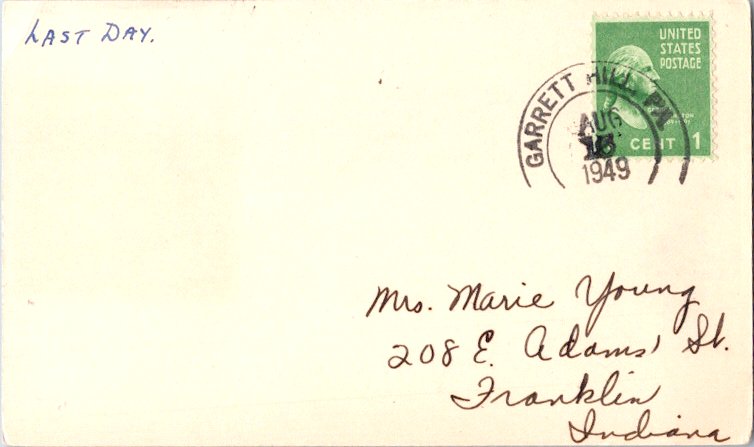 LAST DAY.
UNITED
STATES
POSTAGE
CENT 1
GARRETT HILL, PA.
AUG
1949
Mrs. Marie Young
208 E. Adams St.
Franklin
Indiana